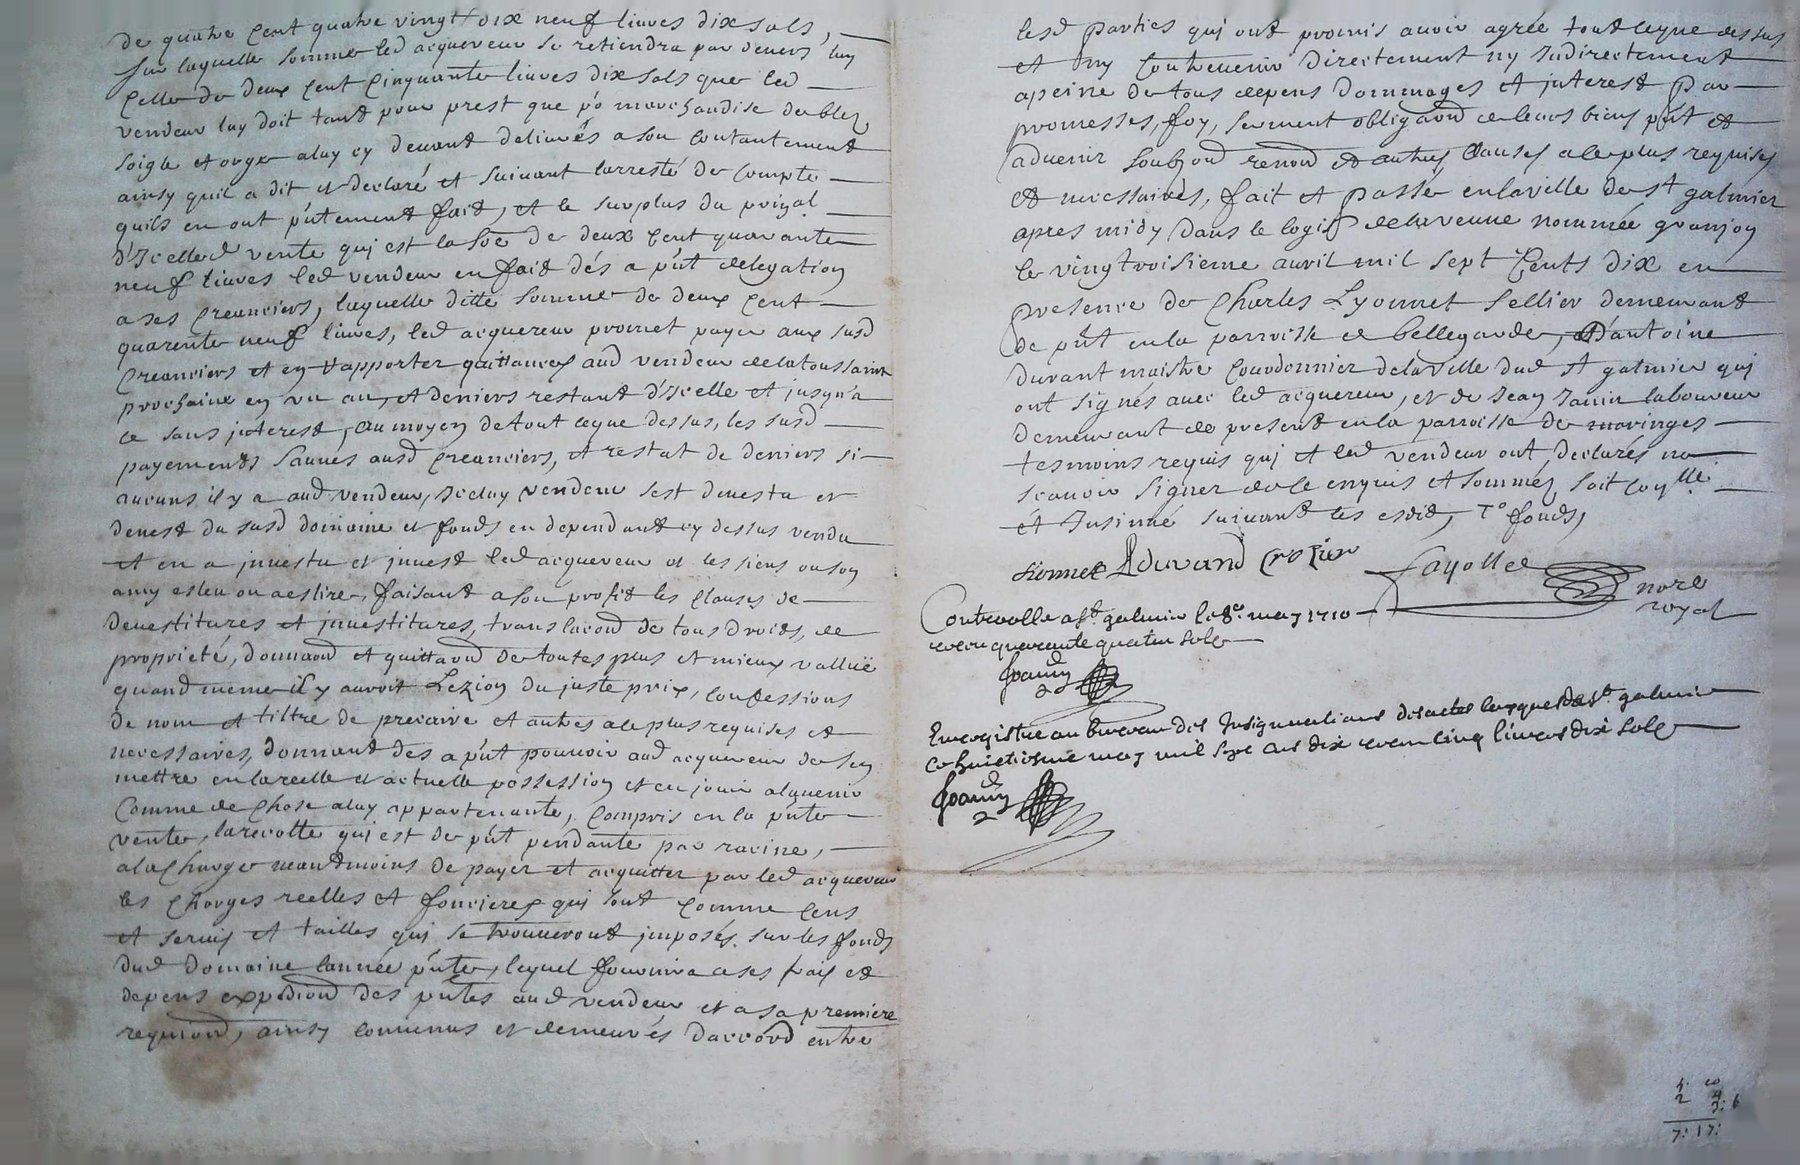 de quatre cent quatre vingt dix neuf livres dix sols,
sur laquelle somme led acquereur se retiendra par devers luy
celle de deux cent cinquante livres dix sols que led
vendeur luy doit tant pour prest que po marchandise de bled
soigle et orge a luy cy devant delivrés a son contantement
ainsy quil a dit et declaré et suivant larresté de compte
quils en ont p̃ntement fait, et le surplus du prix
d'Icelle vente qui est la soẽ de deux cent quarante
neuf livres led vendeur en fait dés a p̃nt delegation
a ses creanciers, laquelle ditte somme de deux cent
quarente neuf livres, led acquereur promet payer aux susd
creanciers et en rapporter quittances aud vendeur de la toussaint
prochaine en un an, et deniers restant d'Icelle et jusqu'a
ce sans jnterest, au moyen de tout ce que dessus, les susd
payements sauves ausd creanciers, et restat de deniers si
aucuns il y a aud vendeur, Iceluy vendeur sest devestu et
devest du susd domaine et fonds en dependant cy dessus vendu
et en a jnvestu et jnvest led acquereur et les siens ou son
amy esleu ou a eslire, faisant a son profit les clauses de
devestitures et jnvestitures, translaond de tous droits, de
proprieté, donnaond et quittaond de toutes plus et mieux vallue
quand meme il y auroit Lezion du juste prix, confessions
de nom et tiltre de precaire et autres a le plus requises et
necessaires, donnant des a p̃nt pouvoir aud acquereur de sen
mettre en la reelle et actuelle possession et en jouir a laquenir
comme de chose a luy appartenante, compris en la p̃nte
vente, la recolte qui est de p̃nt pendante par racine,
a la charge neantmoins de payer et acquitter par led acquereur
les charges reelles et foncieres qui sont comme cens
et servis et tailles qui se trouveront jmposés sur les fonds
dud domaine lannée p̃nte, lequel fournira a ses frais et
depens expediond des p̃ntes aud vendeur et a sa premiere
requiond, ainsy convenus et demeurés daccord entre
lesd parties qui ont promis avoir agrée tout ce que dessus
et ny contrevenir directement ny Indirectement
a peine de tous depens dommages et jnterest par
promesses, foy, serment obligaond de leurs biens p̃nt et
advenir soubzond renond et autres clauses a le plus requises
et necessaires, fait et passé en la ville de st galmier
apres midy dans le logis de la veuve nommée granjon
le vingtroisieme avril mil sept cents dix en
presence de Charles Lyonnet sellier demeurant
de p̃nt en la parroisse de bellegarde, et d'antoine
durant maistre courdonnier de la ville dud st galmier qui
ont signés avec led acquereur, et de Jean Janin laboureur
demeurant de present en la parroisse de maringes
tesmoins requis qui et led vendeur ont declarés ne
scavoir signer de ce enquis et sommés soit coñlle
et Insinué suivant les esdit, To fonds,
Lionnet ADurand Crozier Fayolle
nore
royal
Controolle a st galmier le 8e may 1710
receu quarente quatre sols
Enregistre au bureau des Insignuations des actes laiques de st galmier
ce huictiesme may mil sept cens dix receu cinq livres dix sols
7: 17: